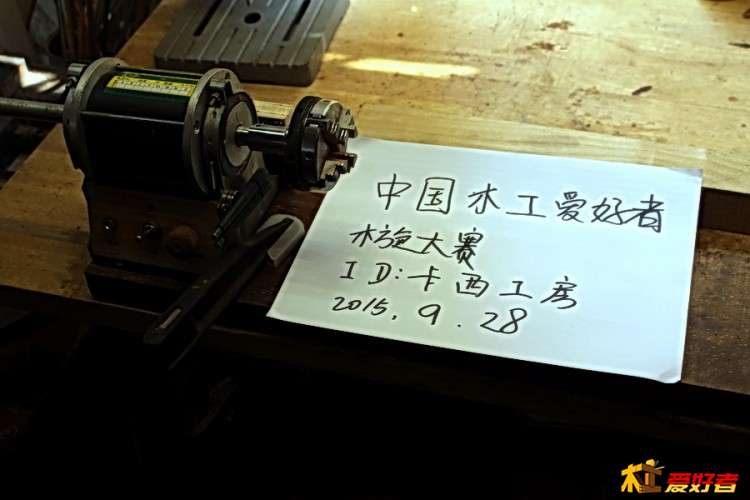 中国木工爱好者
木旋大赛
ID:卡西工房
2015.9.28
木工爱好者